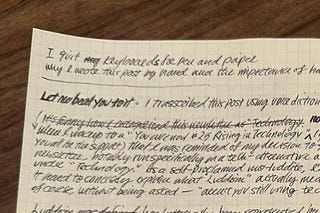 I quit my keyboards for pen and paper
why I wrote this post by hand and the importance of ha
Let me beat you to it - I transcribed this post using voice diction
It's funny how I categorized this newsletter as "Technology". No
when I waxed to a "You are now #25 Rising in Technology"
you all for the support) that I was reminded of my decision to
newsletter, notably run specifically on a tech-alternative a
under "Technology". As a self-proclaimed neo-luddite, I
I need to concisely explain what "luddite" actually m
of course without being asked - "aren't you still using tec